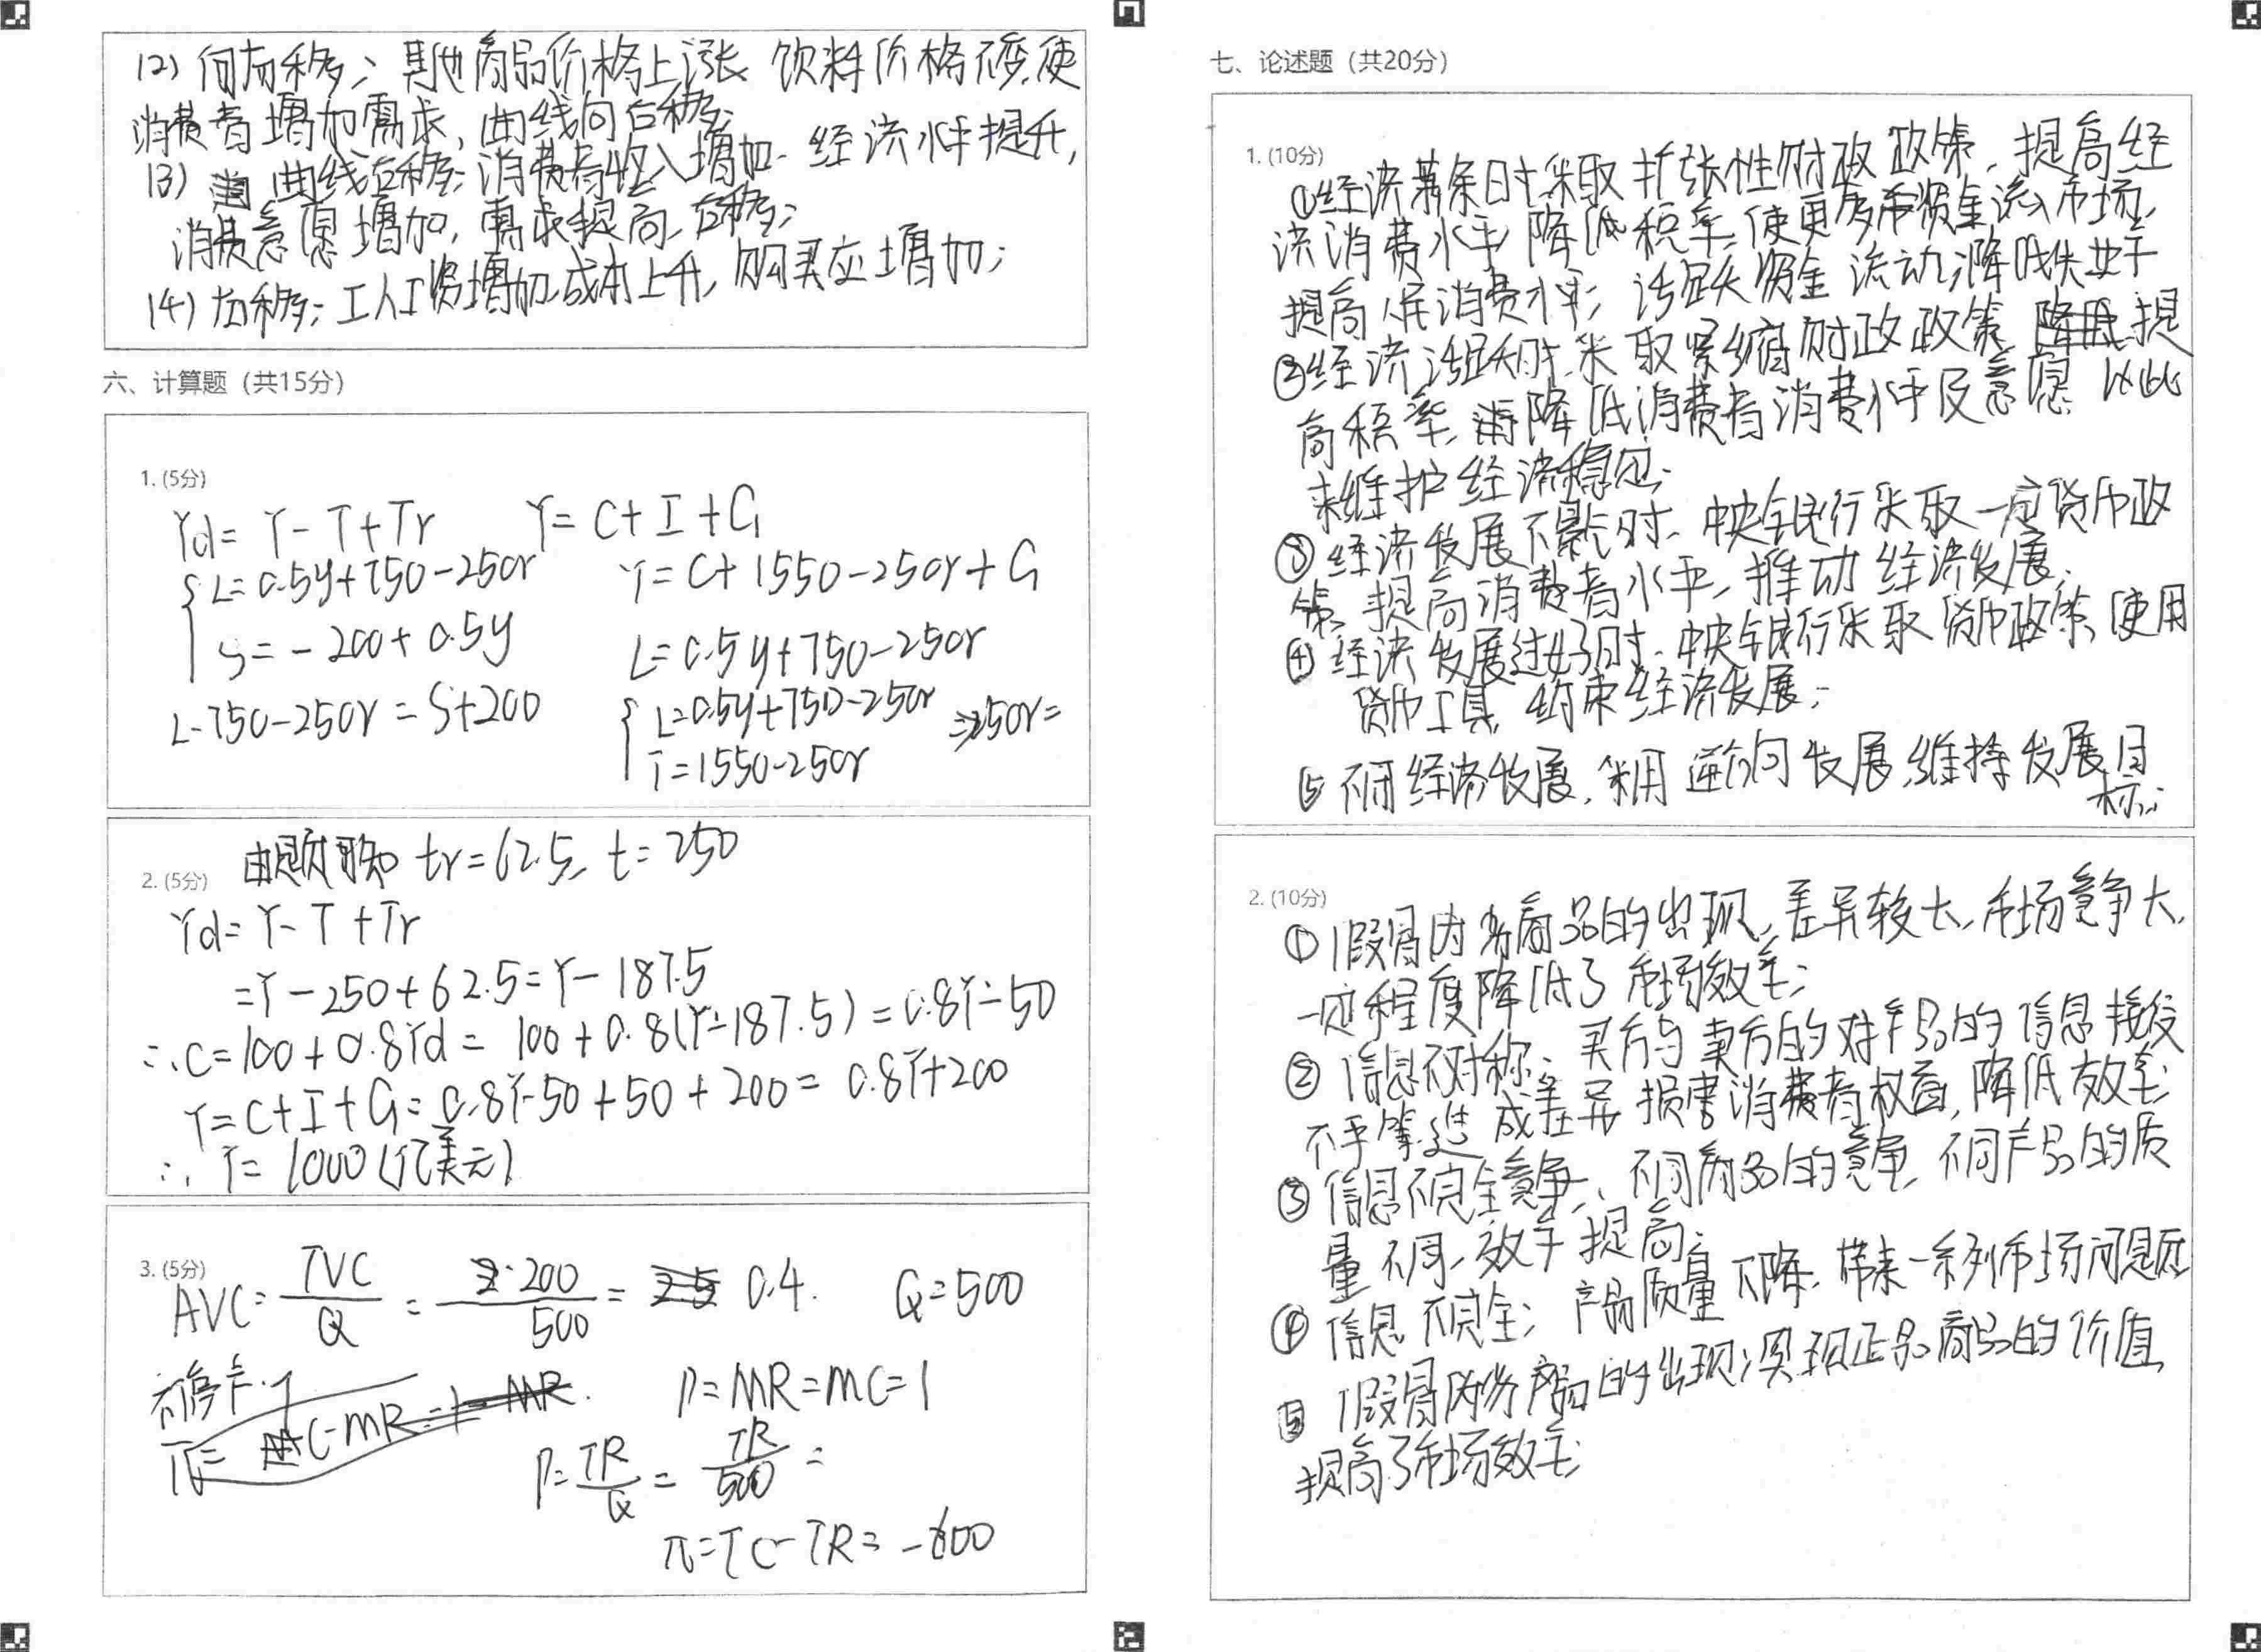 (2) 向右移; 其他商品价格上涨 饮料价格不变,使
消费者增加需求, 曲线向右移;
(3) 曲线右移; 消费者收入增加. 经济水平提升,
消费意愿增加, 需求提高, 右移;
(4) 右移; 工人工资增加,成本上升, 购买应增加;
六、计算题 (共15分)
1. (5分)
Yd = Y - T + Tr Y = C + I + G
L = 0.5y + 750 - 250r Y = C + 1550 - 250r + G
S = - 200 + 0.5y L = 0.5y + 750 - 250r
L - 750 - 250r = S + 200 L = 0.5y + 750 - 250r ⇒ 250r =
I = 1550 - 250r
2. (5分) 由题可知 tr = 62.5, t = 250
Yd = Y - T + Tr
= Y - 250 + 62.5 = Y - 187.5
∴ C = 100 + 0.8Yd = 100 + 0.8(Y - 187.5) = 0.8Y - 50
Y = C + I + G = 0.8Y - 50 + 50 + 200 = 0.8Y + 200
∴ Y = 1000 (亿美元)
3. (5分)
AVC = TVC / Q = 200 / 500 = 0.4. Q = 500
P = MR = MC = 1
P = TR / Q = TR / 500 =
π = TC - TR = -600
七、论述题 (共20分)
1. (10分)
① 经济萧条时采取扩张性财政政策, 提高经
济消费水平, 降低税率, 使更多资金流入市场,
提高人民消费水平; 活跃资金流动, 降低失业率
② 经济活跃时, 采取紧缩财政政策, 提
高税率, 降低消费者消费水平及意愿 以此
来维护经济稳定;
③ 经济发展不景气时, 中央银行采取一定货币政
策, 提高消费者水平, 推动经济发展.
④ 经济发展过好时, 中央银行采取货币政策, 使用
货币工具, 约束经济发展;
⑤ 不同经济发展, 采用逆方向发展,维持发展目
标;
2. (10分)
① 假冒伪劣商品的出现, 差异较大, 市场竞争大,
一定程度降低了市场效率;
② 信息不对称; 买方与卖方的对产品的信息接受
不平等,造成差异 损害消费者权益, 降低效率;
③ 信息不完全竞争, 不同商品的竞争, 不同产品的质
量不同, 效率提高;
④ 信息不完全; 产品质量下降, 带来一系列市场问题
⑤ 假冒伪劣产品的出现; 实现正品商品的价值,
提高了市场效率;